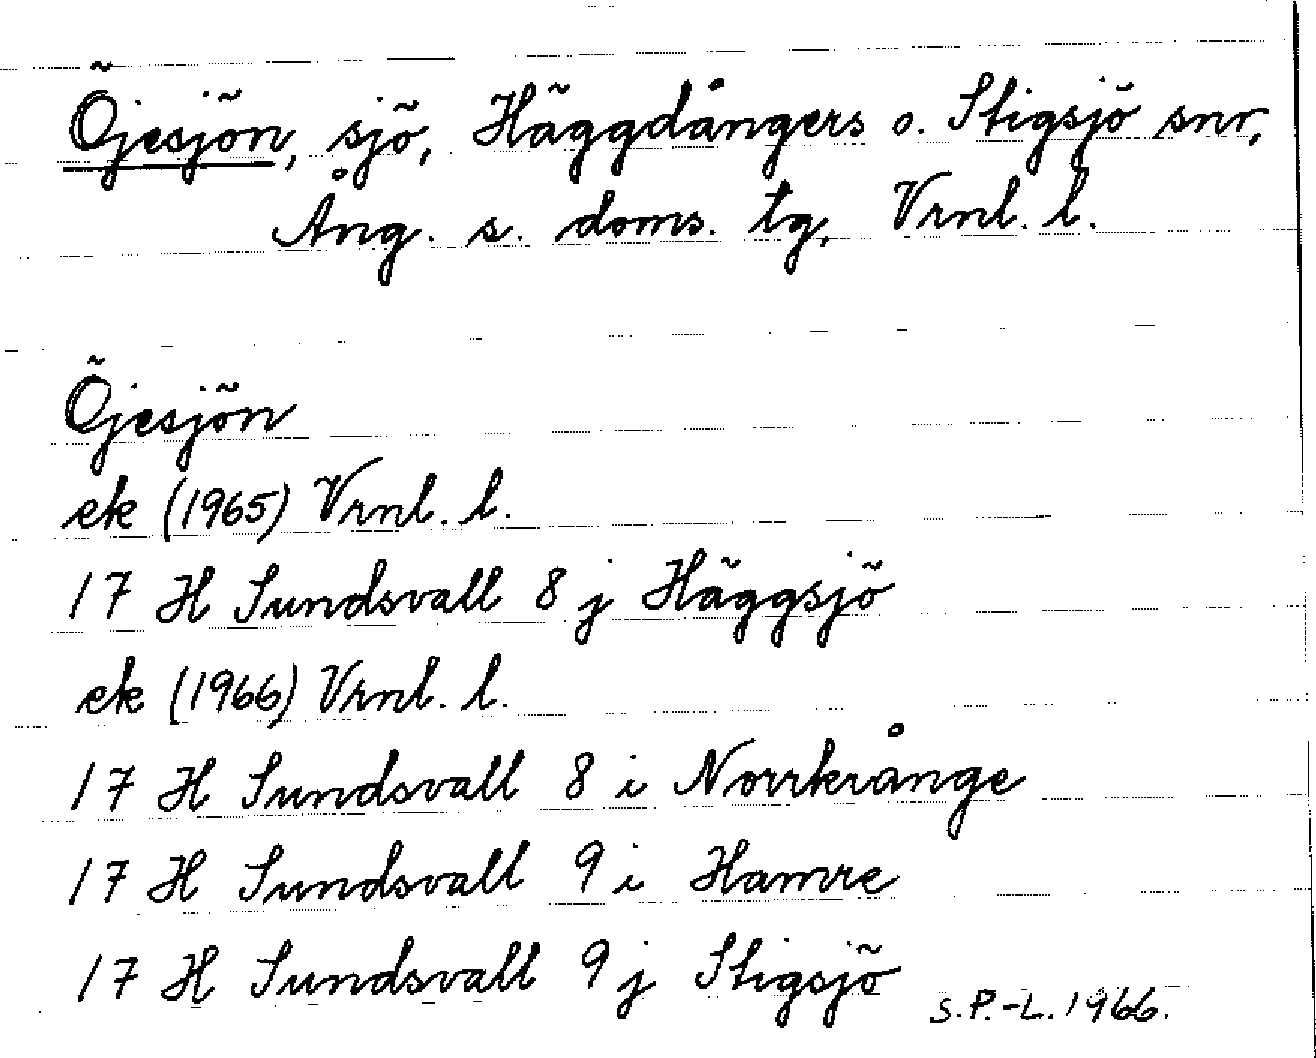 Öjesjön, sjö, Häggdångers o. Stigsjö snr,
Ång. s. doms. tg, Vrnl. l.
Öjesjön
ek (1965) Vrnl. l.
17 H Sundsvall 8 j Häggsjö
ek (1966) Vrnl. l.
17 H Sundsvall 8 i Norrkrånge
17 H Sundsvall 9 i Hamre
17 H Sundsvall 9 j Stigsjö
S.P.-L. 1966.